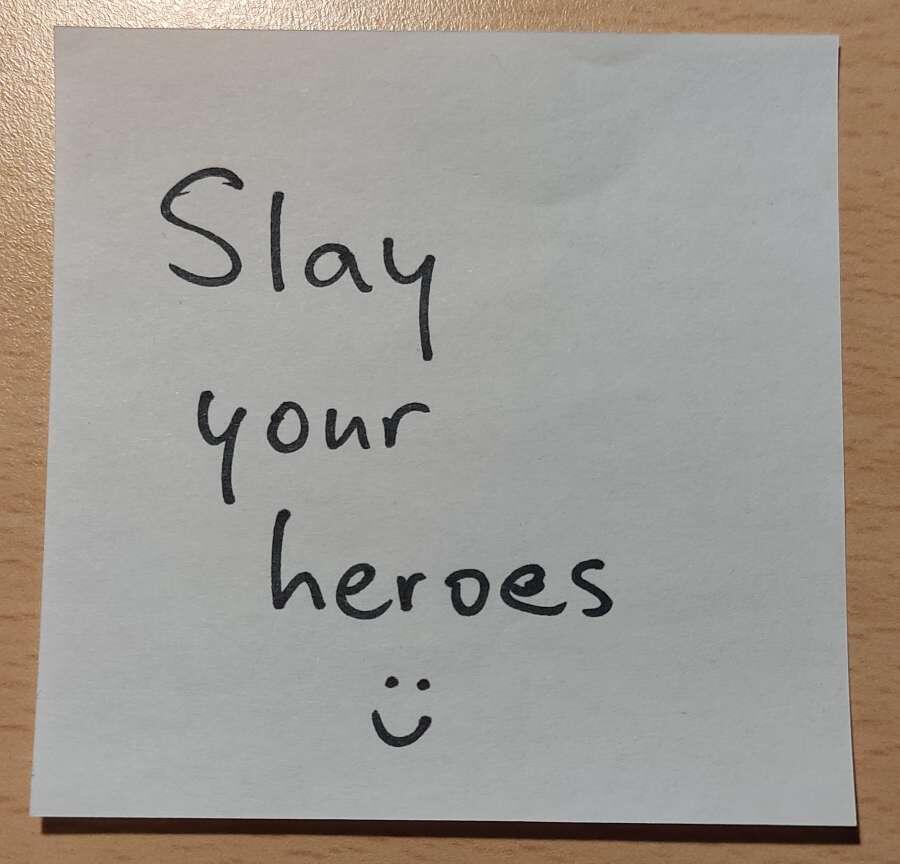 Slay
your
heroes